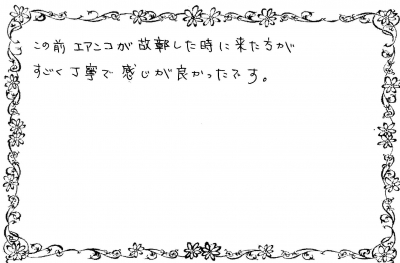 この前 エアコンが故郭した時に来た方が
すごく丁寧で感じが良かったです。